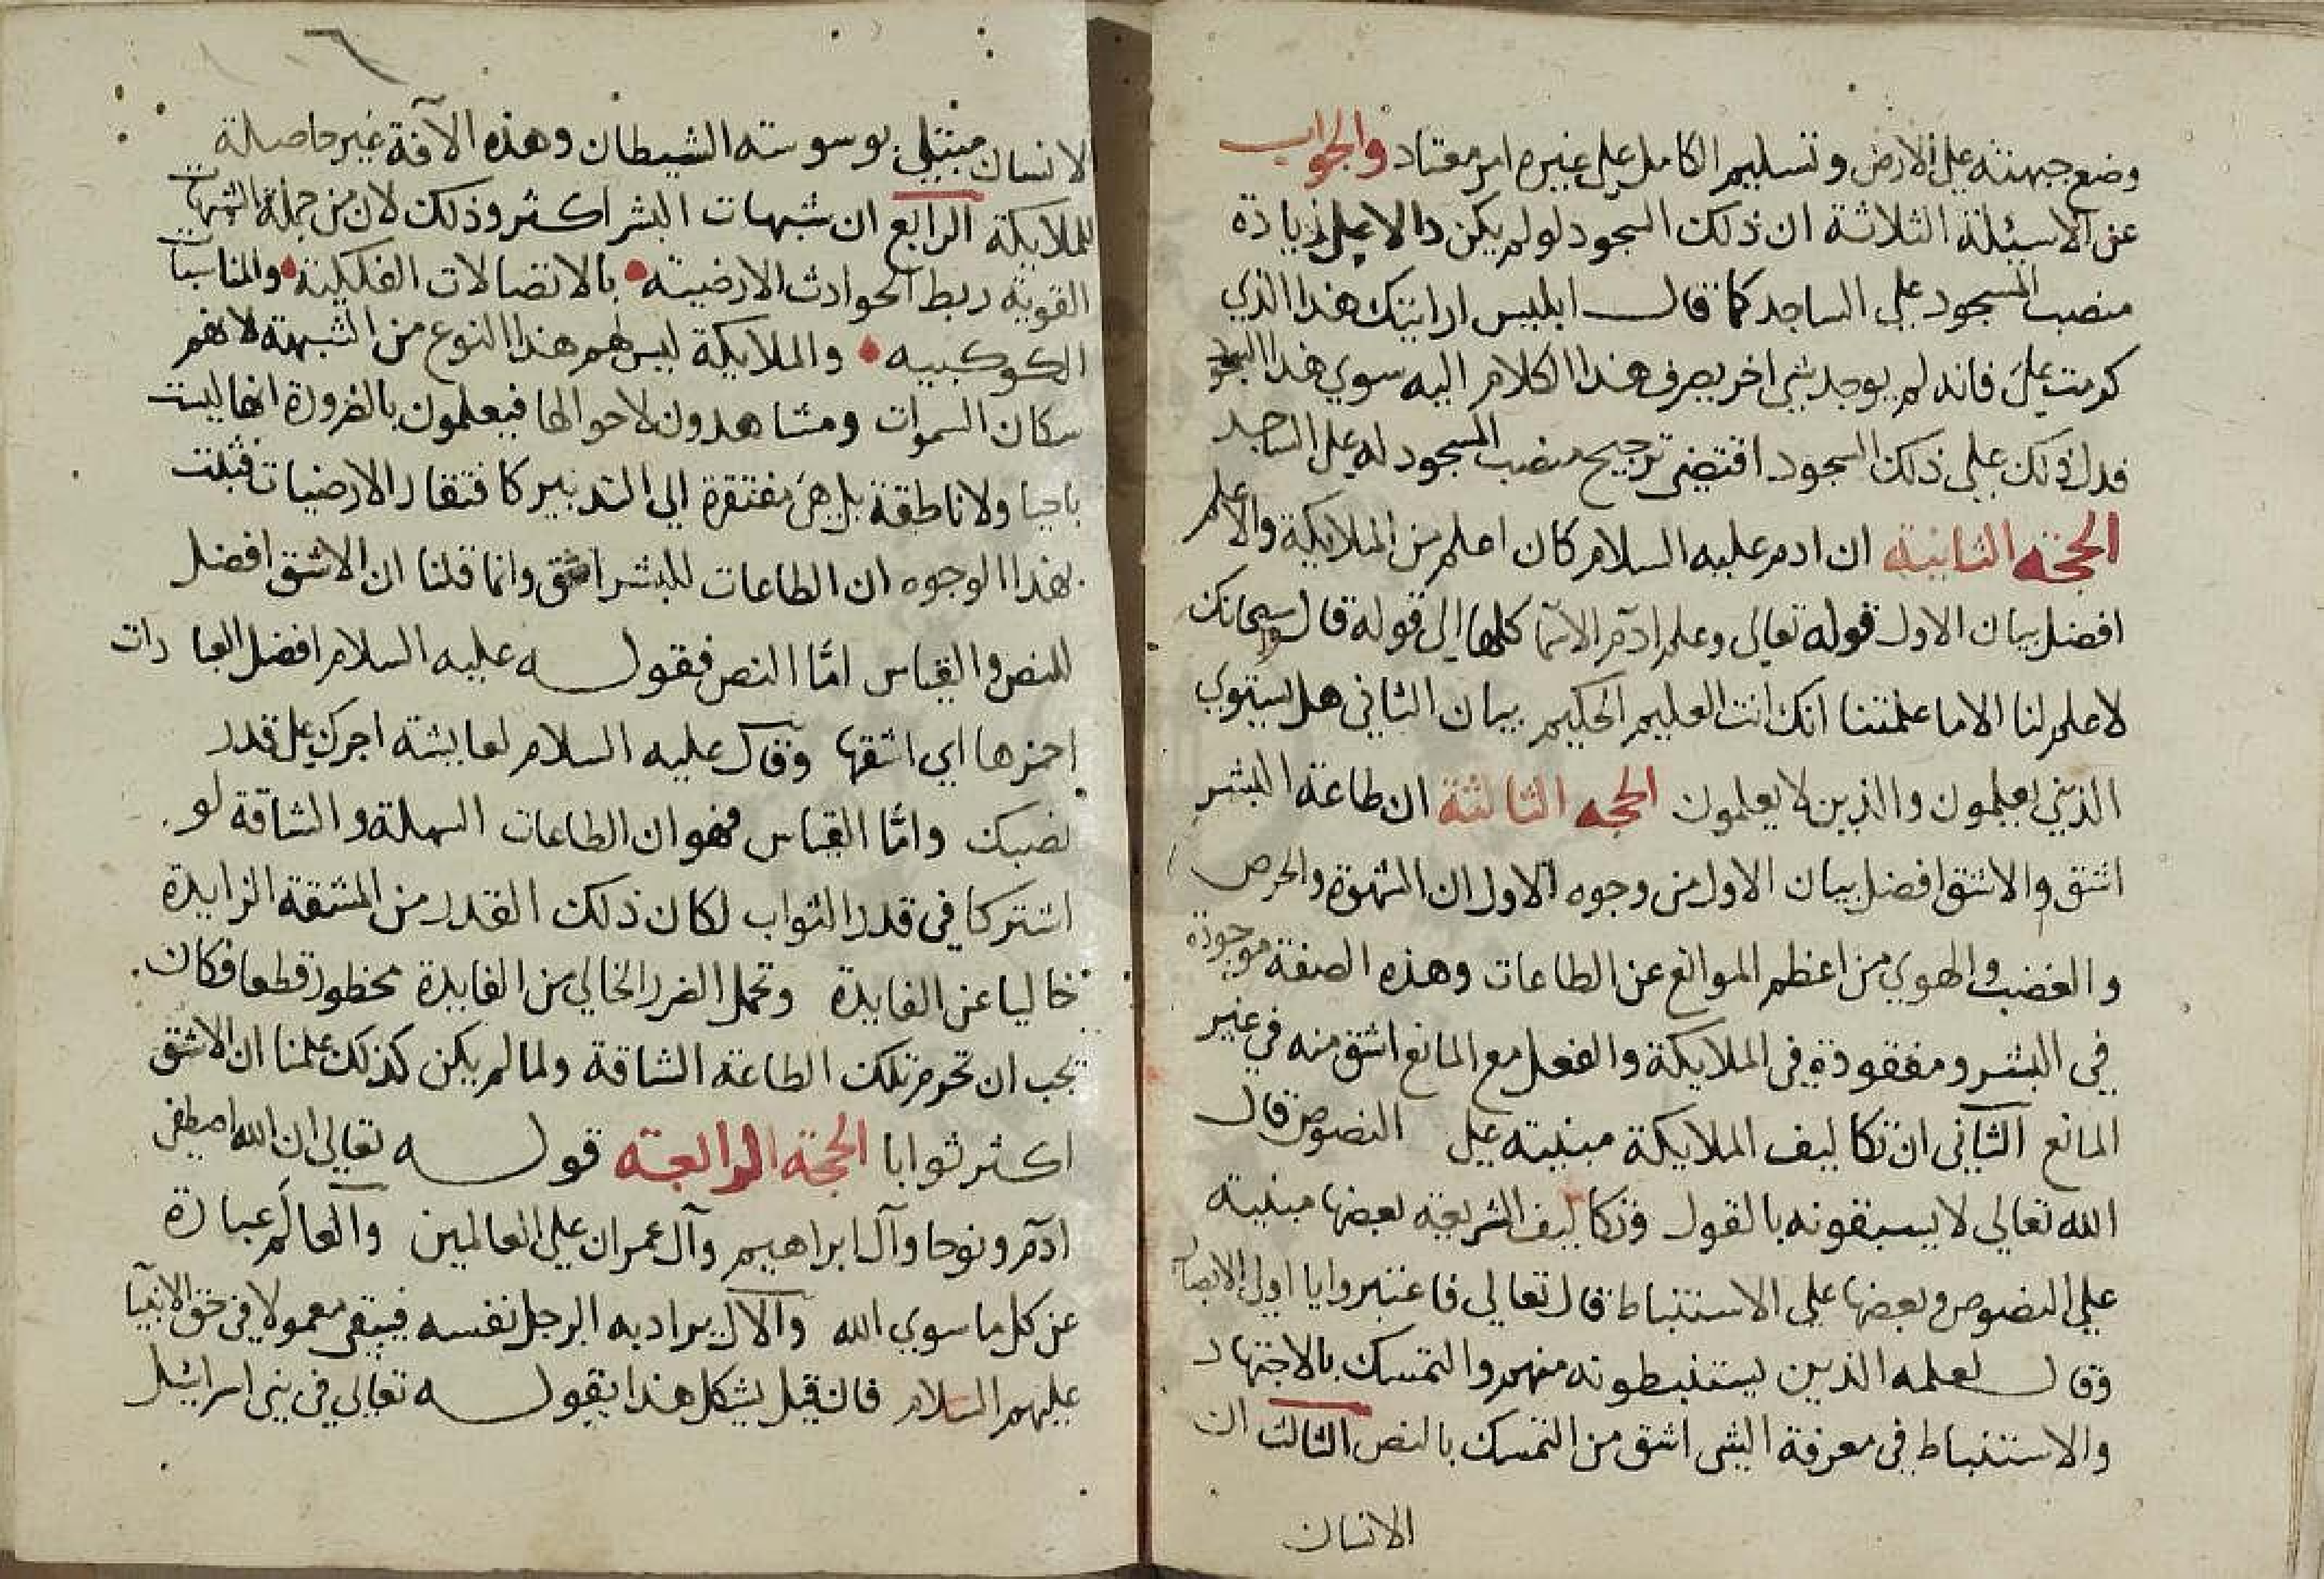 وضع جبهته علي الارض وتسليم الكامل علي غيره امر معتاد والجواب
عن الاسيلة الثلاثة ان ذلك السجود لو لم يكن دالا علي زيادة
منصب المسجود علي الساجد كما قال ابليس ارايتك هذا الذي
كرمت علي فانه لم يوجد شي اخر يصرف هذا الكلام اليه سوي هذا السجود
فدل ذلك علي ذلك السجود اقتضي ترجيح منصب المسجود له علي الساجد
الحجة الثانية ان ادم عليه السلام كان اعلم من الملايكة والاعلم
افضل بيان الاول قوله تعالي وعلم ادم الاسما كلها الي قوله قالوا سبحانك
لا علم لنا الا ما علمتنا انك انت العليم الحكيم بيان الثاني هل يستوي
الذين يعلمون والذين لا يعلمون الحجه الثالثة ان طاعة البشر
اشق والاشق افضل بيان الاول من وجوه الاول ان الشهوة والحرص
والغضب والهوي من اعظم الموانع عن الطاعات وهذه الصفة موجودة
في البشر ومفقودة في الملايكة والفعل مع المانع اشق منه في غير
المانع الثاني ان تكاليف الملايكة مبنية علي النصوص قال
الله تعالي لا يسبقونه بالقول وتكاليف الشريعة بعضها مبنية
علي النصوص وبعضها علي الاستنباط قال تعالي فاعتبروا يا اولي الابصار
وقال لعلمه الذين يستنبطونه منهم والتمسك بالاجتهاد
والاستنباط في معرفة الشي اشق من التمسك بالنص الثالث ان
الانسان
الانسان مبتلي بوسوسته الشيطان وهذه الآفة غير حاصلة
للملايكة الرابع ان شبهات البشر اكثر وذلك لان من جملة الشبهات
القوية ربط الحوادث الارضية بالاتصالات الفلكية والمناسبات
الكوكبيه والملايكة ليس لهم هذا النوع من الشبهة لانهم
سكان السموات ومشاهدون لاحوالها فيعلمون بالضرورة انها ليست
باحيا ولا ناطقة بل هي مفتقرة الي التدبير كافتقار الارضيات فثبت
بهذا الوجوه ان الطاعات للبشر اشق وانما قلنا ان الاشق افضل
للنص والقياس امّا النص فقوله عليه السلام افضل العبادات
احمزها اي اشقها وقال عليه السلام لعايشة اجرك علي قدر
نصبك وامّا القياس فهو ان الطاعات السهلة والشاقة لو
اشتركا في قدر الثواب لكان ذلك القدر من المشقة الزايدة
خاليا عن الفايدة وتحمل الضرر الخالي عن الفايدة محظور قطعا فكان
يجب ان تحرم تلك الطاعة الشاقة ولما لم يكن كذلك علمنا ان الاشق
اكثر ثوابا الحجة الرابعة قوله تعالي ان الله اصطفي
ادم ونوحا وآل ابراهيم وآل عمران علي العالمين والعالم عبارة
عن كل ما سوي الله والآل يراد به الرجل نفسه فيبقي معمولا في حق الانبيا
عليهم السلام فان قيل يشكل هذا بقوله تعالي في بني اسرائيل